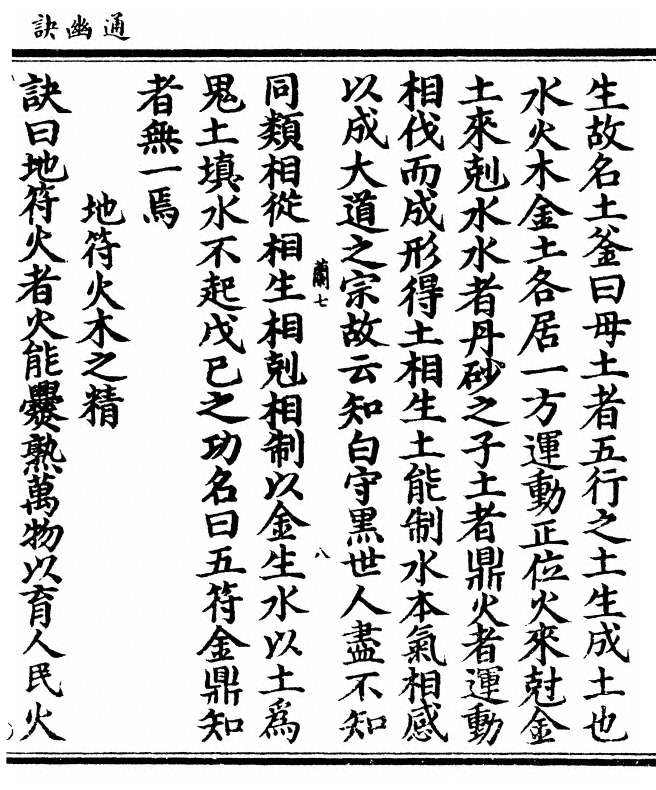 通幽訣
生故名土釜曰毋土者五行之土生成土也
水火木金土各居一方運動正位火來尅金
土來剋水水者丹砂之子土者鼎火者運動
相伐而成形得土相生土能制水本氣相感
以成大道之宗故云知白守黒世人盡不知
蘭七 八
同類相從相生相剋相制以金生水以土為
鬼土填水不起戊己之功名曰五符金鼎知
者無一焉
地符火木之精
訣曰地符火者火能爨熟萬物以育人民火